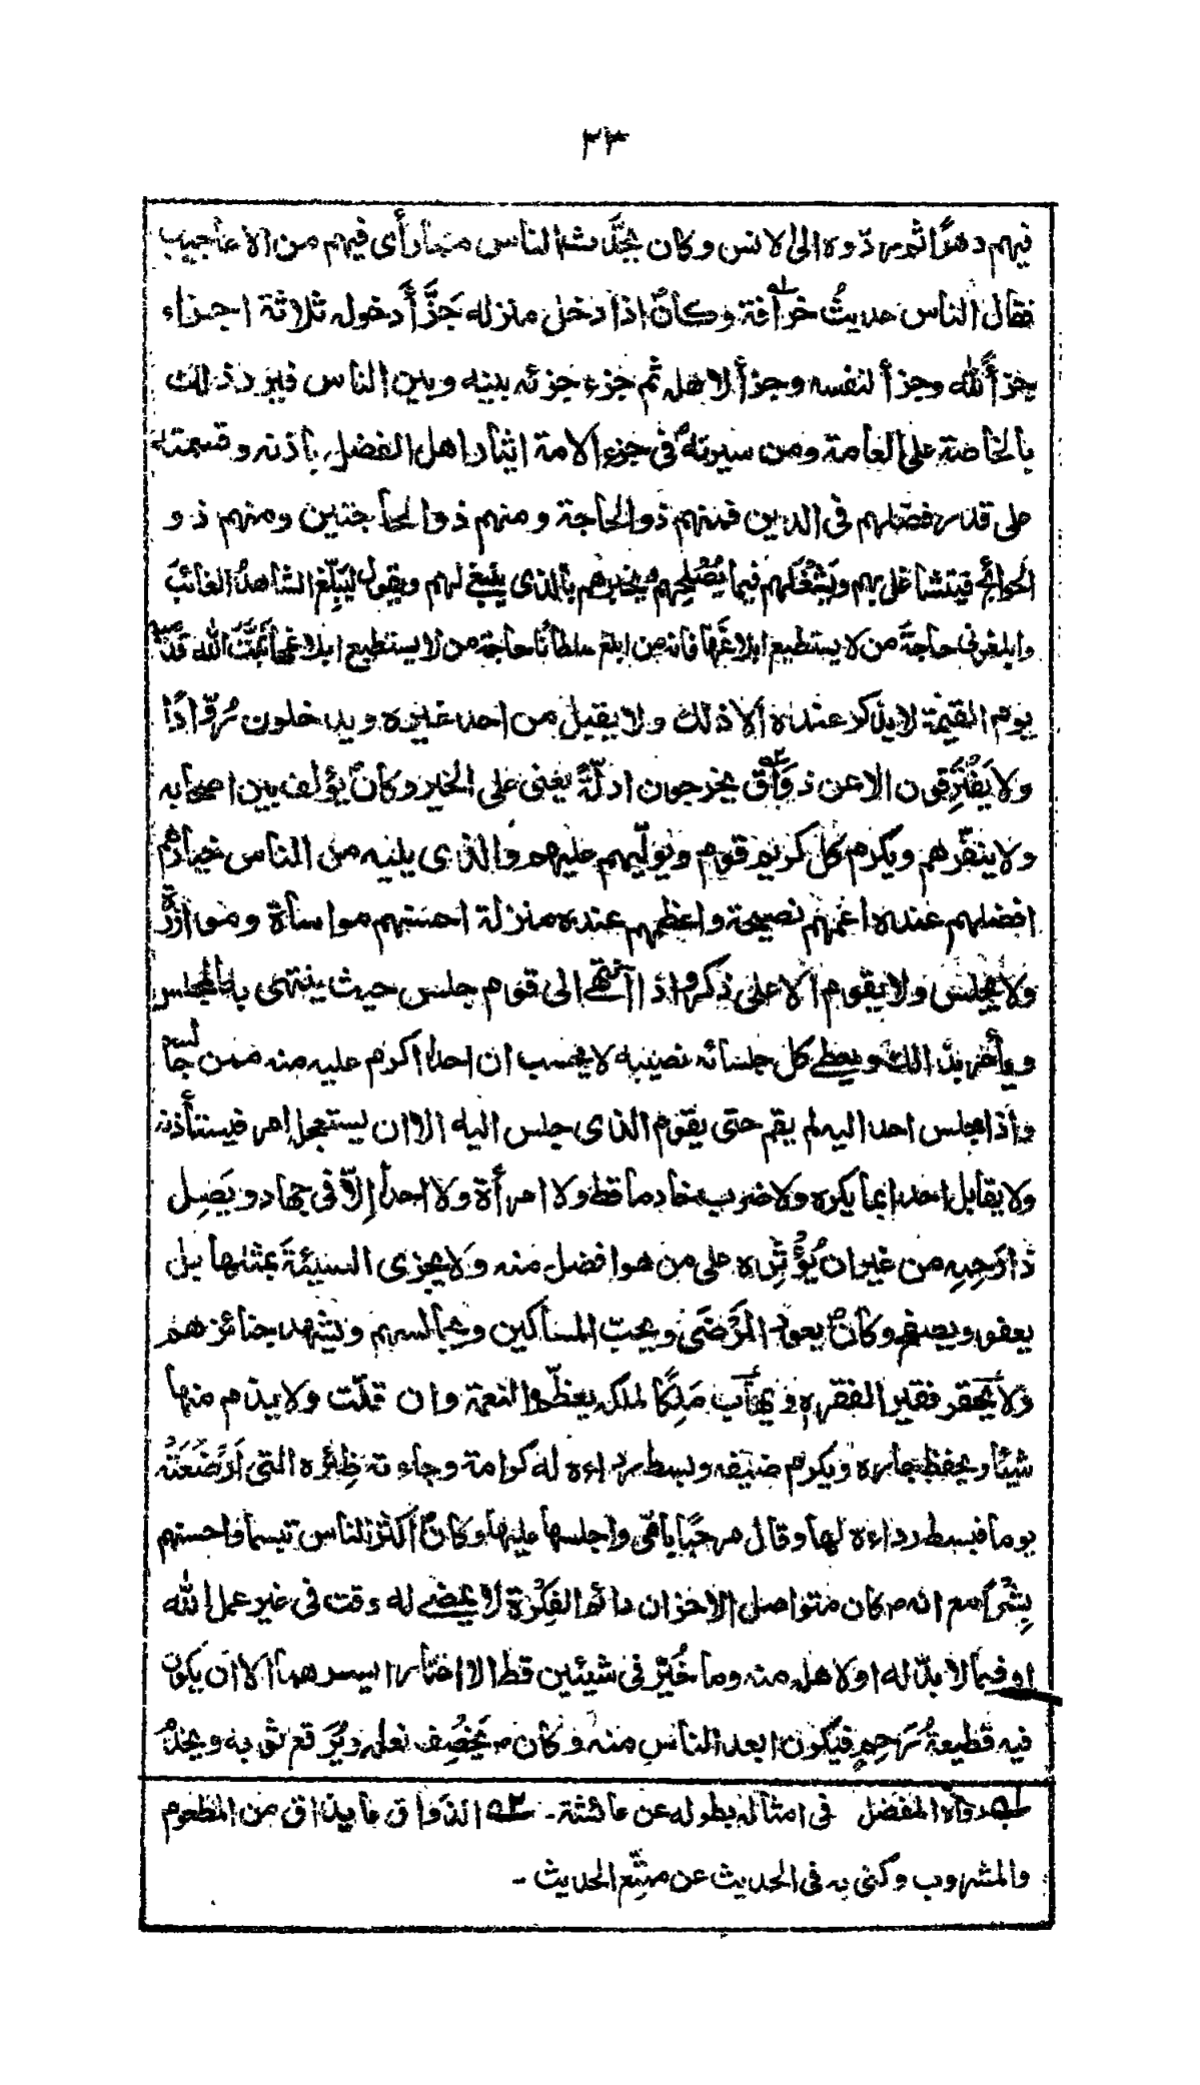 ٣٣
فيهم دهرًا ثم ردّوه الى الانس وكان يحدّث الناس مما رأى فيهم من الاعاجيب
فقال الناس حديثُ خرافة وكان اذا دخل منزله جَزَّأَ دخوله ثلاثة اجزاء
جزأً لله وجزأ لنفسه وجزأ لاهله ثم جزء جزئه بينه وبين الناس فيرد ذلك
بالخاصة على العامة ومن سيرته في جزء الامة ايثار اهل الفضل باذنه وقسمته
على قدر فضلهم في الدين فمنهم ذو الحاجة ومنهم ذو الحاجتين ومنهم ذو
الحوائج فيتشاغل بهم ويَشْغَلهم فيما يُصْلِحهم ويخبرهم بالذى ينبغي لهم ويقول ليبلّغ الشاهدُ الغائبَ
وابلغونى حاجةَ من لا يستطيع ابلاغَها فانه من ابلغ سلطانًا حاجة من لا يستطيع ابلاغها ثَبَّتَ الله قدميه
يوم القيمة لا يذكر عنده الا ذلك ولا يقبل من احد غيره ويدخلون رُوّادًا
ولا يَفْتَرِقون الا عن ذَوَاق يخرجون ادلّةً يعنى على الخير وكان يؤلف بين اصحابه
ولا ينفّرهم ويكرم كل كريم قوم ويولّيهم عليهم والذى يليه من الناس خيارهم
افضلهم عنده اعمّهم نصيحة واعظمهم عنده منزلة احسنهم مواساة وموازرة
ولا يجلس ولا يقوم الا على ذكر واذا انتهى الى قوم جلس حيث ينتهى به المجلس
ويأمر بذالك ويعطى كل جلسائه نصيبه لا يحسب ان احدا اكرم عليه منه ممن جالسه
واذا جلس احد اليه لم يقم حتى يقوم الذى جلس اليه الا ان يستعجل امر فيستأذنه
ولا يقابل احدا بما يكره ولا ضرب خادما قط ولا امرأة ولا احدا إلّا في جهاد ويَصِل
ذا رَحِمِه من غير ان يُؤْثِره على من هو افضل منه ولا يجزى السيئةَ بمثلها بل
يعفو ويصفح وكان يعود المَرْضَى ويحب المساكين ويجالسهم ويشهد جنائزهم
ولا يحقر فقيرا لفقره ولا يهاب مَلِكًا لملكه يعظّم النعمة وان قلّت ولا يذم منها
شيئا ويحفظ جاره ويكرم ضيفه وبسط رداءه له كرامة وجاءته ظِئره التى اَرْضَعَتْه
يوما فبسط رداءه لها وقال مرحبًا بامّى واجلسها عليها وكان اكثر الناس تبسما واحسنهم
بِشْرًا مع انه كان متواصل الاحزان دائم الفِكْرَة لا يمضى له وقت في غير عمل الله
او فيما لا بدّ له او لاهله منه وما خُيّر في شيئين قط الا اختار ايسرهما الا ان يكون
فيه قطيعةُ رَحِمٍ فيكون ابعد الناس منه وكان يَخْصِف نعله ويُرَقِّع ثوبه ويخدُم
له رواه المفضل في امثاله بطوله عن عائشة - ٢ه الذواق ما يذاق من المطعوم
والمشروب وكنى به في الحديث عن متّبع الحديث -